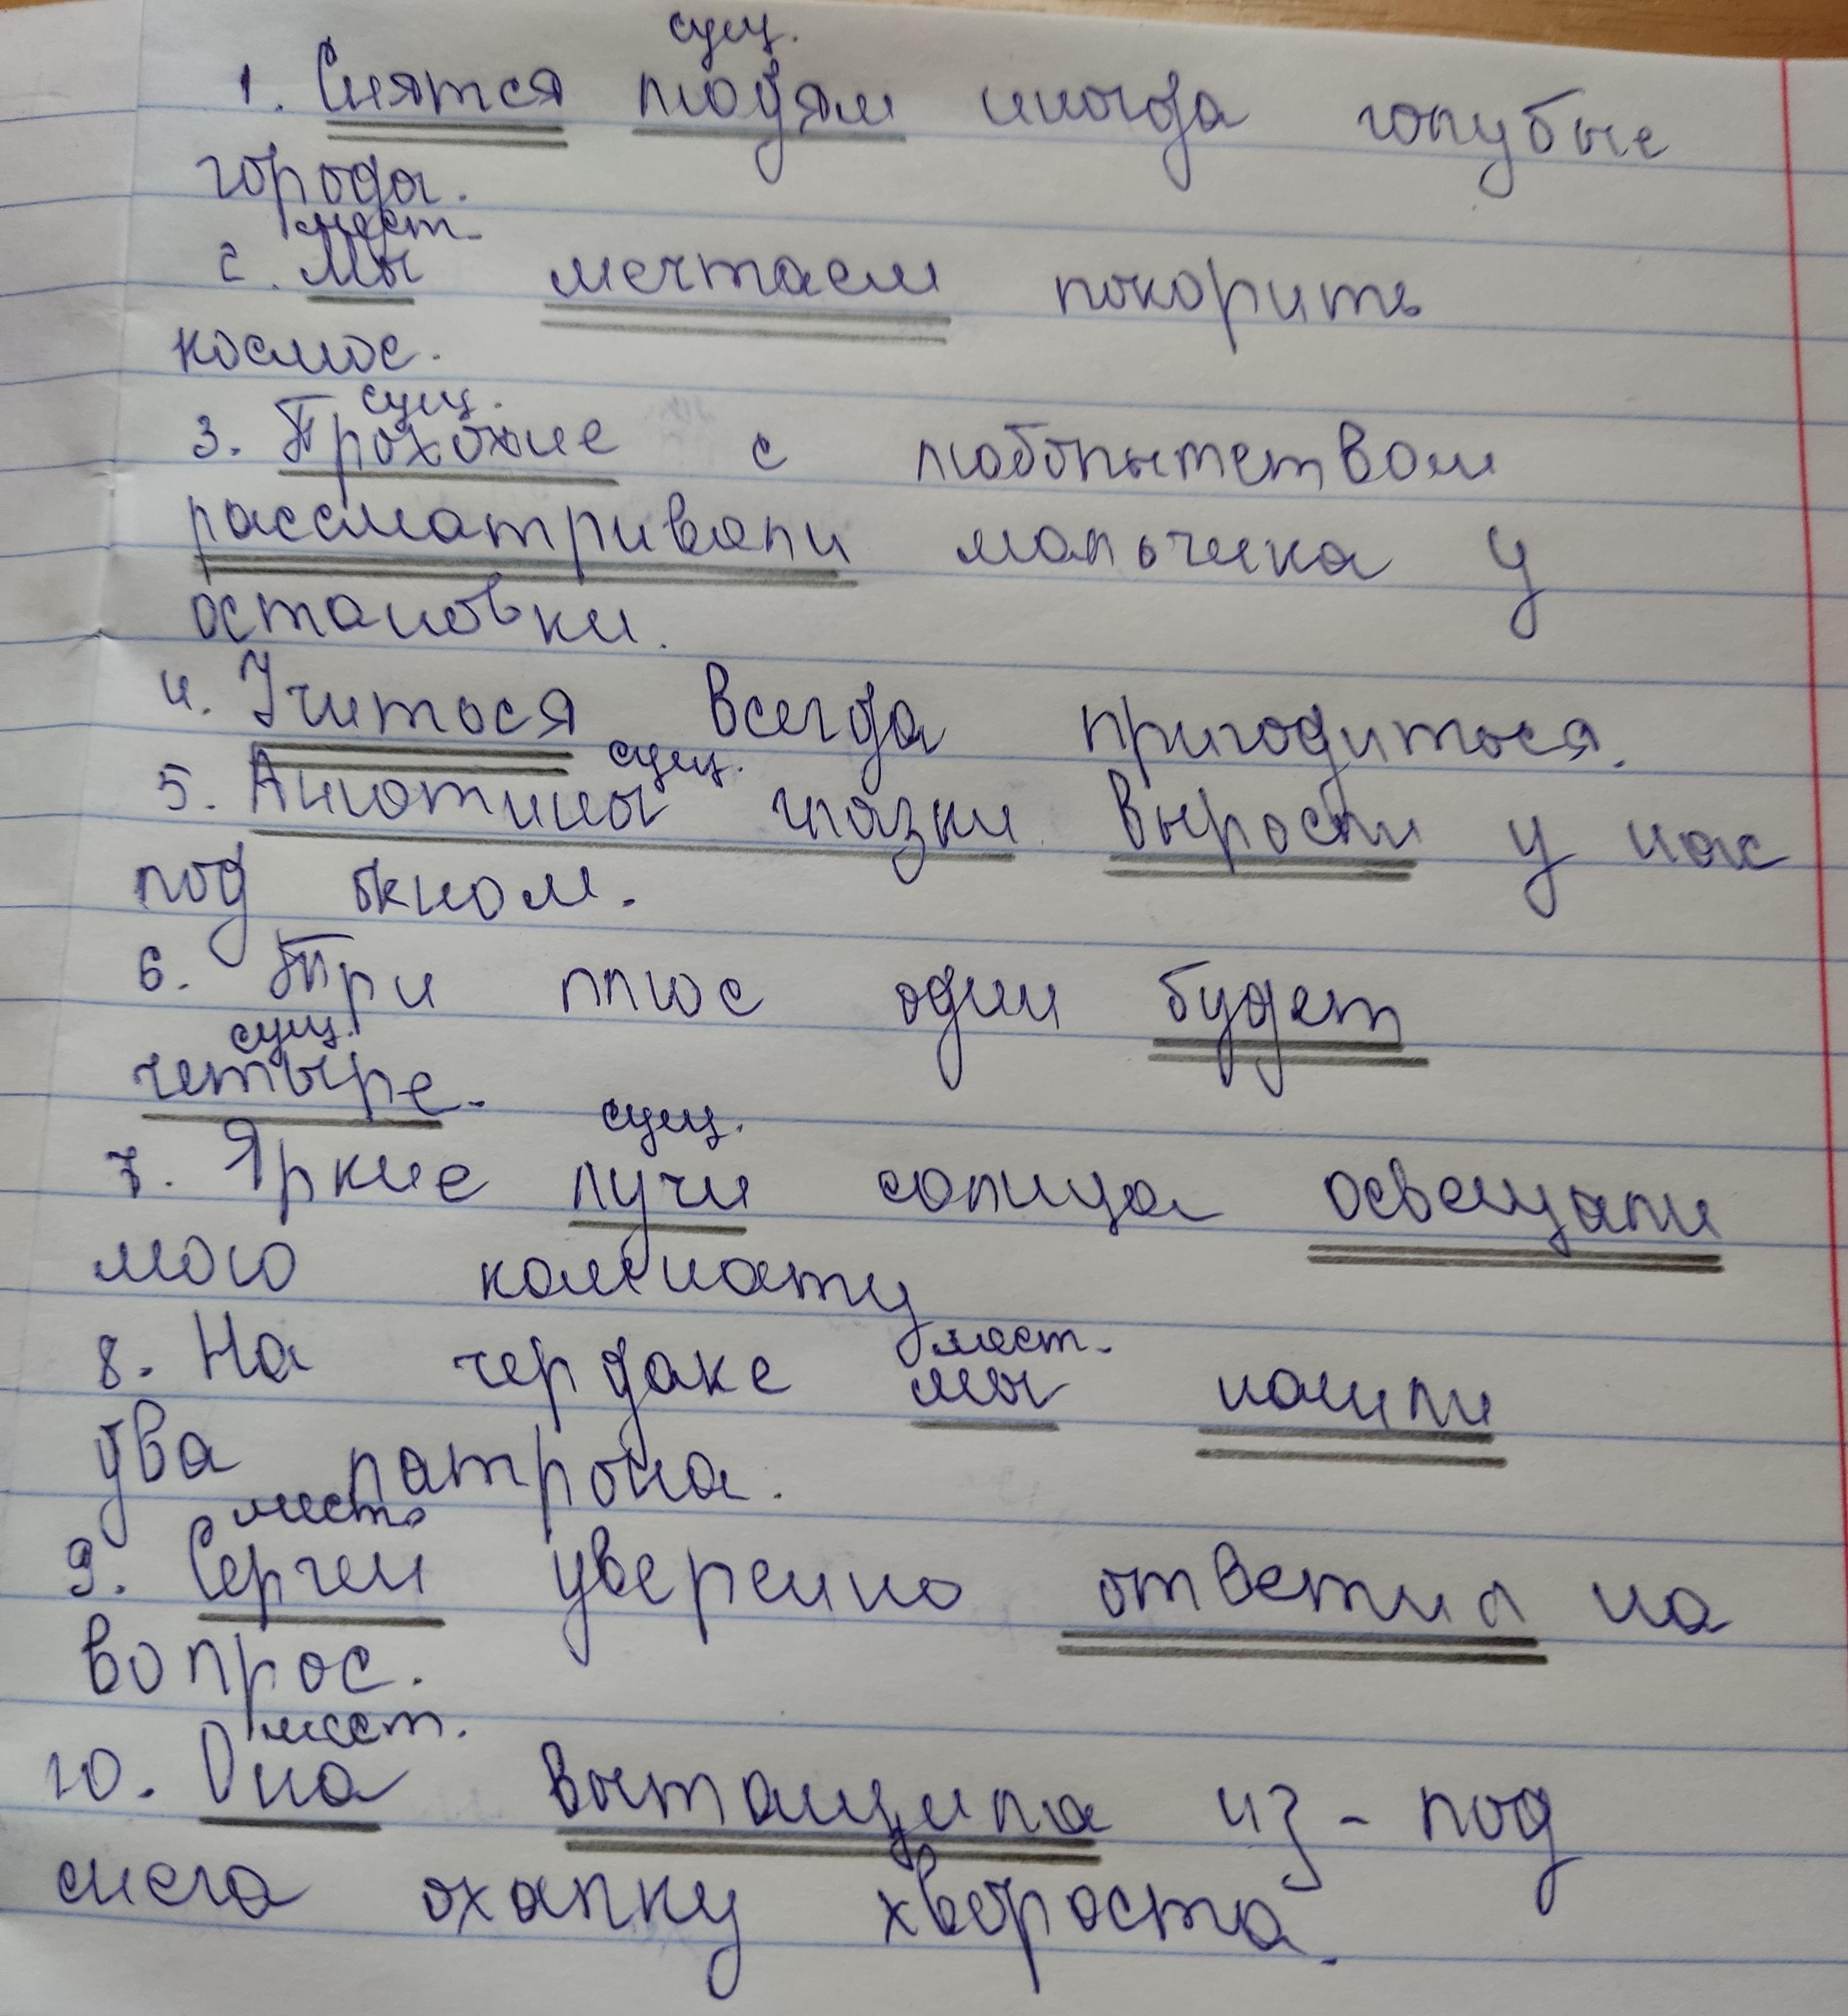 сущ.
1. Снятся людям иногда голубые
города.
мест.
2. Мы мечтаем покорить
космос.
сущ.
3. Прохожие с любопытством
рассматривали мальчика у
остановки.
4. Учиться всегда пригодиться.
сущ.
5. Анютины глазки выросли у нас
под окном.
6. Три плюс один будет
сущ.
четыре.
сущ.
7. Яркие лучи солнца освещали
мою комнату
мест.
8. На чердаке мы нашли
два патрона.
мест.
9. Сергей уверенно ответил на
вопрос.
мест.
10. Она вытащила из-под
снега охапку хвороста.